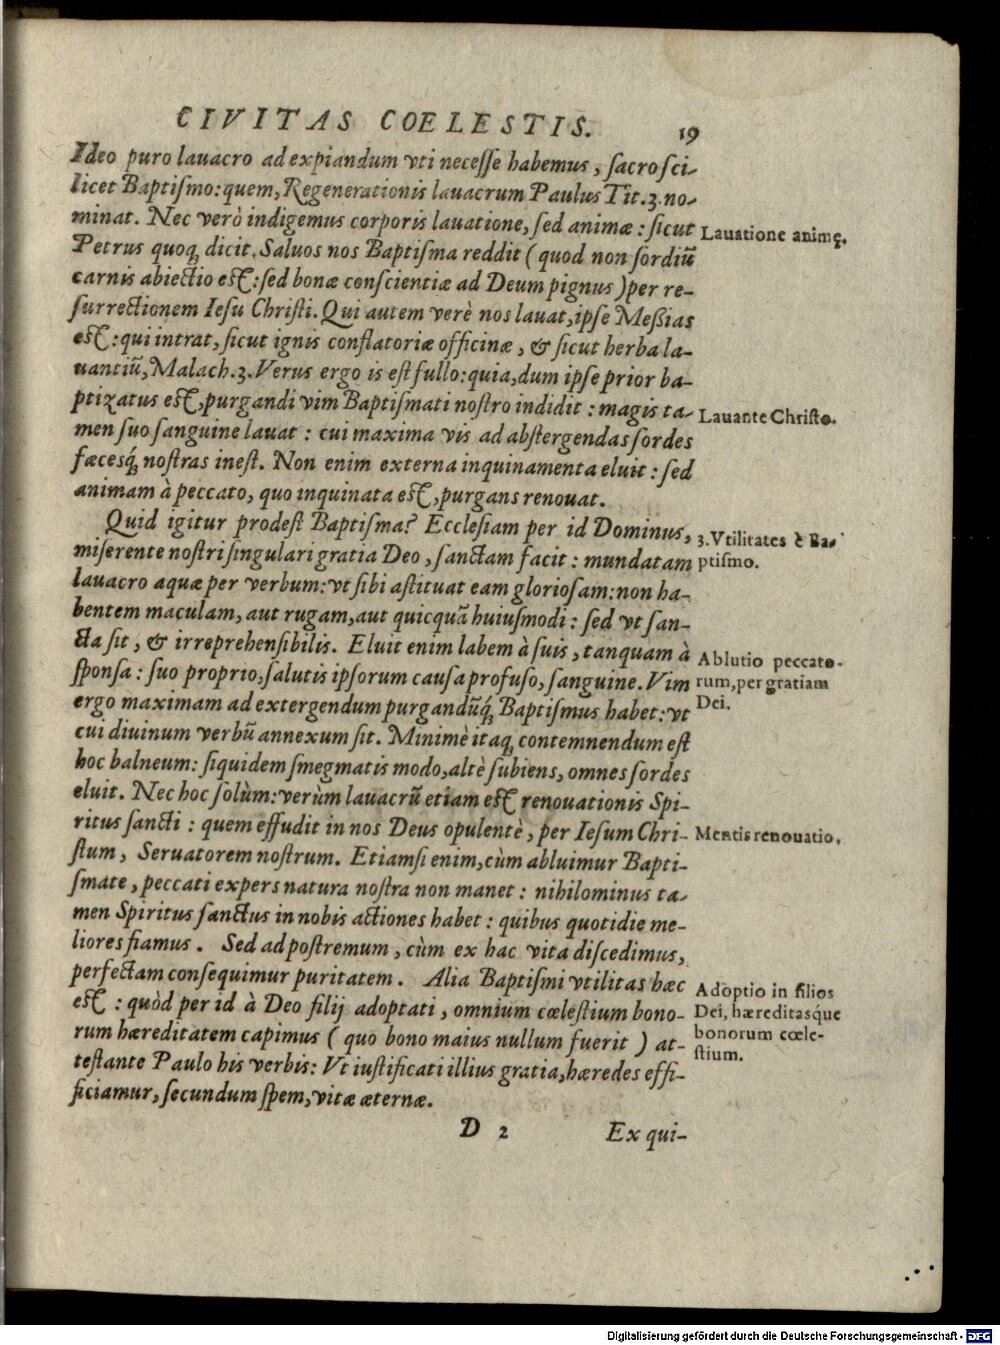 CIVITAS COELESTIS. 19
Ideo puro lauacro ad expiandum vti necesse habemus, sacro sci-
licet Baptismo: quem, Regenerationis lauacrum Paulus Tit. 3. no-
minat. Nec verò indigemus corporis lauatione, sed animæ: sicut
Lauatione animę.
Petrus quoq; dicit. Saluos nos Baptisma reddit (quod non sordiū
carnis abiectio est: sed bonæ conscientiæ ad Deum pignus) per re-
surrectionem Iesu Christi. Qui autem verè nos lauat, ipse Messias
est: qui intrat, sicut ignis conflatoriæ officinæ, & sicut herba la-
uantiū, Malach. 3. Verus ergo is est fullo: quia, dum ipse prior ba-
ptizatus est, purgandi vim Baptismati nostro indidit: magis ta-
Lauante Christo.
men suo sanguine lauat: cui maxima vis ad abstergendas sordes
fæcesq́; nostras inest. Non enim externa inquinamenta eluit: sed
animam à peccato, quo inquinata est, purgans renouat.
Quid igitur prodest Baptisma? Ecclesiam per id Dominus,
3. Vtilitates è Ba-
miserente nostri singulari gratia Deo, sanctam facit: mundatam
ptismo.
lauacro aquæ per verbum: vt sibi astituat eam gloriosam: non ha-
bentem maculam, aut rugam, aut quicquā huiusmodi: sed vt san-
cta sit, & irreprehensibilis. Eluit enim labem à suis, tanquam à
Ablutio peccato-
sponsa: suo proprio, salutis ipsorum causa profuso, sanguine. Vim
rum, per gratiam
ergo maximam ad extergendum purgandūq́; Baptismus habet: vt
Dei.
cui diuinum verbū annexum sit. Minimè itaq; contemnendum est
hoc balneum: siquidem smegmatis modo, altè subiens, omnes sordes
eluit. Nec hoc solùm: verùm lauacrū etiam est renouationis Spi-
ritus sancti: quem effudit in nos Deus opulentè, per Iesum Chri-
Mentis renouatio.
stum, Seruatorem nostrum. Etiamsi enim, cùm abluimur Bapti-
smate, peccati expers natura nostra non manet: nihilominus ta-
men Spiritus sanctus in nobis actiones habet: quibus quotidie me-
liores fiamus. Sed ad postremum, cùm ex hac vita discedimus,
perfectam consequimur puritatem. Alia Baptismi vtilitas hæc
Adoptio in filios
est: quòd per id à Deo filij adoptati, omnium cœlestium bono-
Dei, hæreditasque
rum hæreditatem capimus (quo bono maius nullum fuerit) at-
bonorum cœle-
stium.
testante Paulo his verbis: Vt iustificati illius gratia, hæredes effi-
ficiamur, secundum spem, vitæ æternæ.
D 2 Ex qui-
Digitalisierung gefördert durch die Deutsche Forschungsgemeinschaft - DFG